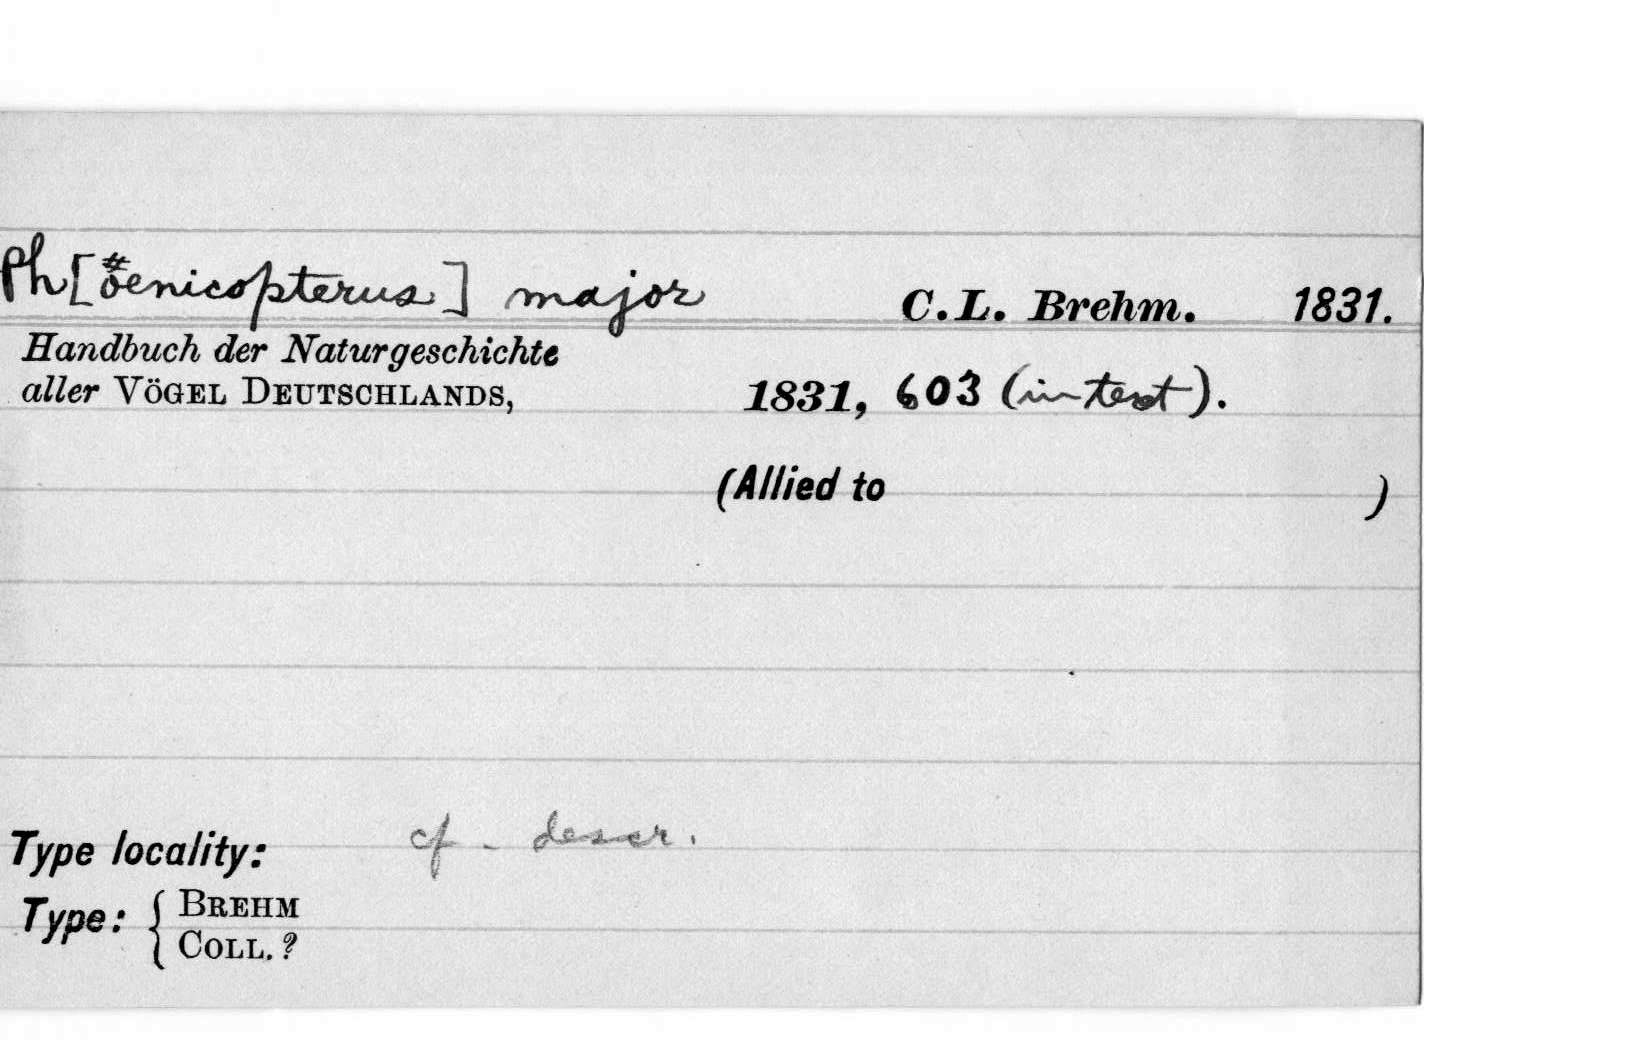 Ph[öenicopterus] major C.L. Brehm. 1831.
Handbuch der Naturgeschichte
aller VÖGEL DEUTSCHLANDS, 1831, 603 (in text).
(Allied to )
Type locality: cf. descr.
Type: { BREHM
COLL. ?